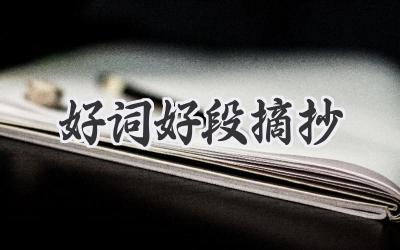 好词好段摘抄